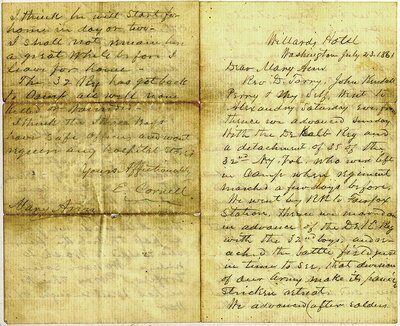 Willards Hotel
Washington July 23. 1861
Dear Mary Ann
Rev D. Torry, John Kendall
Perry & My Self went to
Alexandry Saturday Evening
thence we advanced Sunday
With the De Kalb Reg and
a detachment of 25 of the
32nd Ny. Vol. who were left
in Camp when regiment
marched a few days before.
We went by RR to Fairfax
Station, thence we marched on
in advance of the De K. Reg
with the 32nd boys, and re
ached the battle field just
in time to see that division
of our Army make its panic
stricken retreat.
We advanced after soldiers
I think he will start for
home in day or two-
I shall not remain here
a great while before I
leave for home.
The 32 Reg has got back
to Camp and will remain
I think the
have
Hospital
Yours Affectionately
E. Cornell
Mary Ann